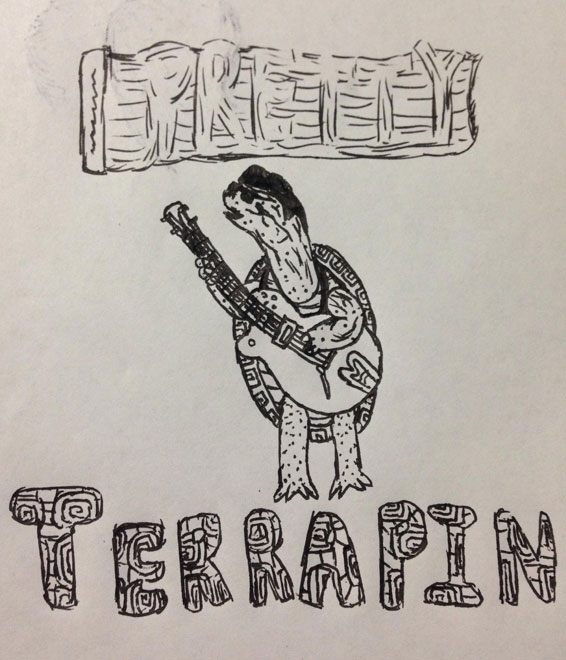 PRETTY
TERRAPIN